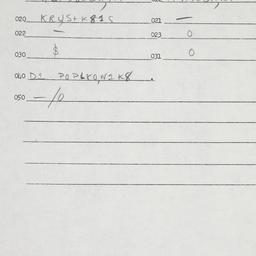 020 KRYSTK81S 021 —
022 — 023 0
030 $ 031 0
040 D2 POPLKON2K8.
050 — 10